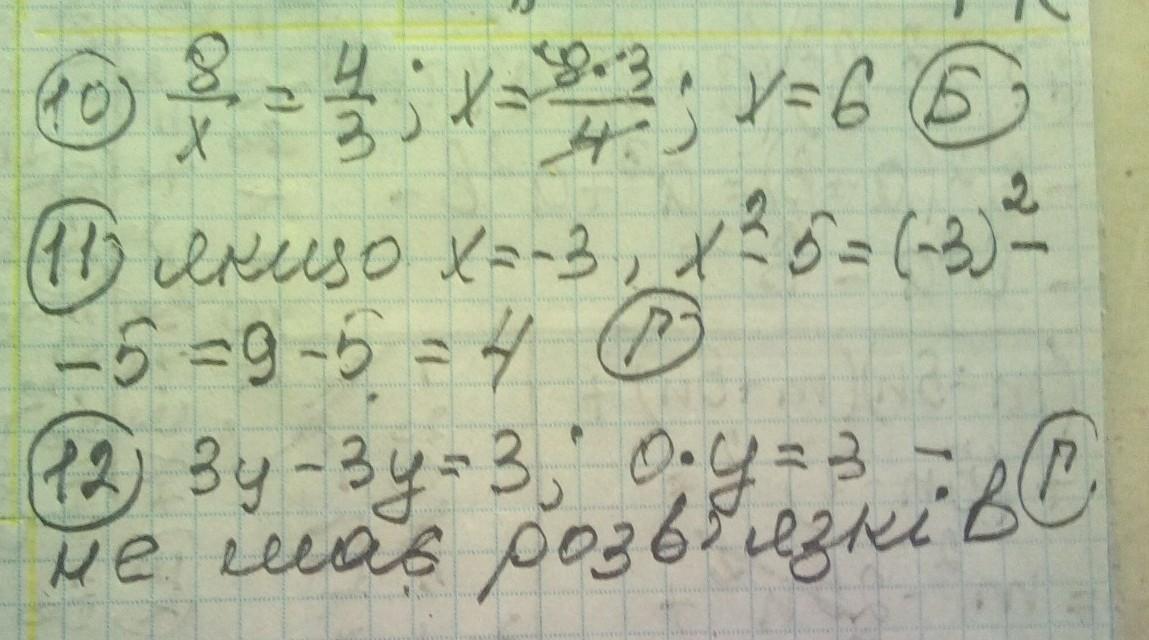 10) 8/x = 4/3; x = 8·3/4; x = 6 Б
11) якщо x = -3, x² - 5 = (-3)² -
- 5 = 9 - 5 = 4 Г
12) 3y - 3y = 3; 0·y = 3 - Г
не має розв'язків